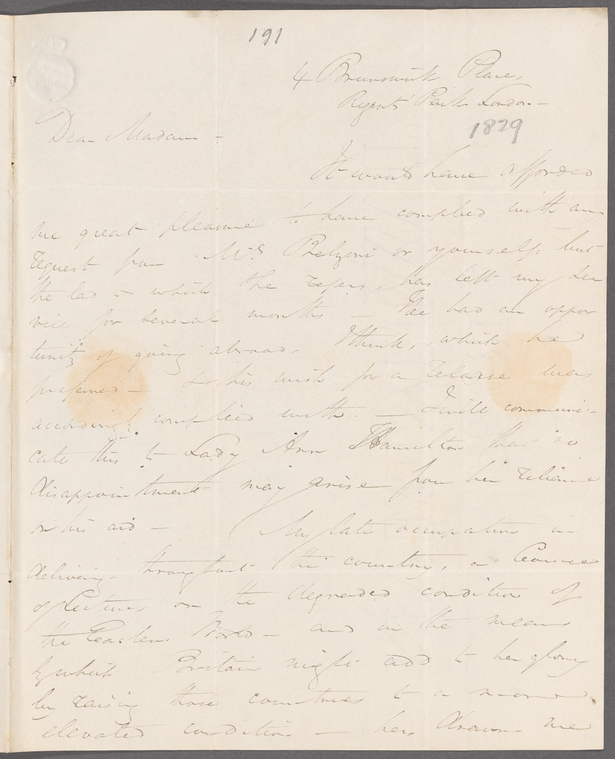 191
4 Brunswick Place,
Regents Park London -
1829
Dear Madam -
It would have afforded
me great pleasure to have complied with any
request from Mrs Belzoni or yourself: but
the lad to which she refers, has left my ser
vice for several months - He had an oppor
tunity of going abroad, I think, which he
preferred - & his wish for a release was
accordingly complied with. - I will communi-
cate this to Lady Ann Hamilton that no
disappointment may arise from her reliance
on his aid - My late occupation in
delivering throughout the country, a Course
of Lectures on the degraded condition of
the Eastern World - and on the means
by which Britain might add to her glory
by raising those countries to a more
elevated condition - has drawn me